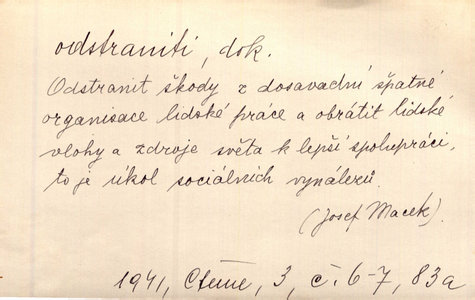 odstraniti, dok.
Odstranit škody z dosavadní špatné
organisace lidské práce a obrátit lidské
vlohy a zdroje světa k lepší spolupráci,
to je úkol sociálních vynálezů.
(Josef Macek).
1941, Čteme, 3, č. 6-7, 83a